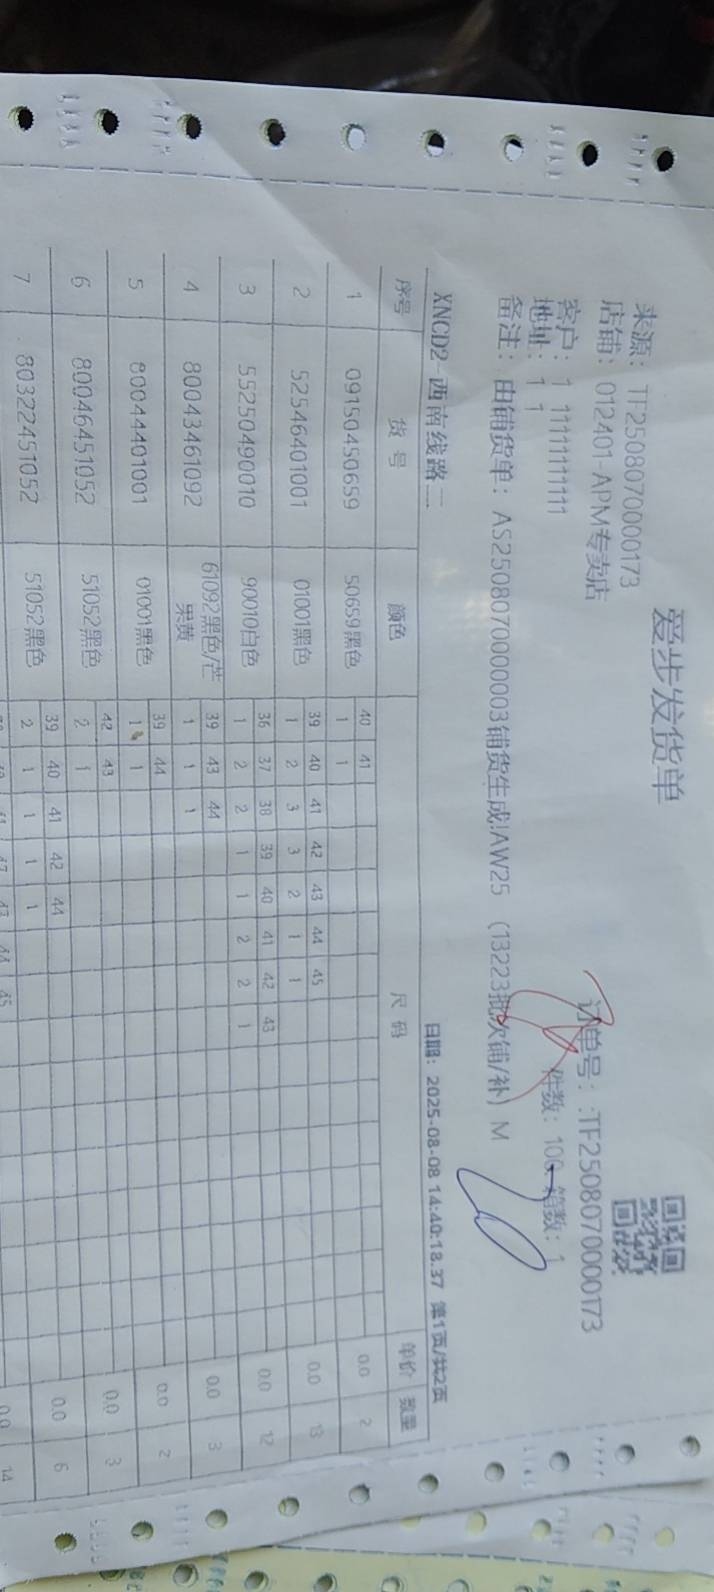 爱步发货单
来源：TF2508070000173
订单号：:TF2508070000173
店铺：012401-APM专卖店
客户：1 1111111111
件数：100 箱数：1
地址：1 1
备注：由铺货单：AS2508070000003铺货生成!AW25 (13223批次铺/补) M
XNCD2-西南线路二 日期：2025-08-08 14:40:18.37 第1页/共2页
序号 货号 颜色 尺码 单价 数量
40 41
1 09150450659 50659黑色 1 1 0.0 2
39 40 41 42 43 44 45
2 52546401001 01001黑色 1 2 3 3 2 1 1 0.0 13
36 37 38 39 40 41 42 43
3 55250490010 90010白色 1 2 2 1 1 2 2 1 0.0 12
39 43 44
4 80043461092 61092黑色/芒果黄 1 1 1 0.0 3
39 44
5 80044401001 01001黑色 1 1 0.0 2
42 43
6 80046451052 51052黑色 2 1 0.0 3
39 40 41 42 44
7 80322451052 51052黑色 2 1 1 1 1 0.0 6
43 44 45
0.0 14